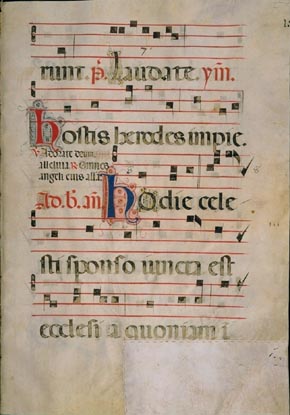 runt. p̄. Laudate. ym̄.
Hostis herodes impie.
v Adorate deum
alleluia R Omnes
angeli eius alla
Ad. b. añ. Hodie cele
sti sponso iuncta est
ecclesia quoniam i